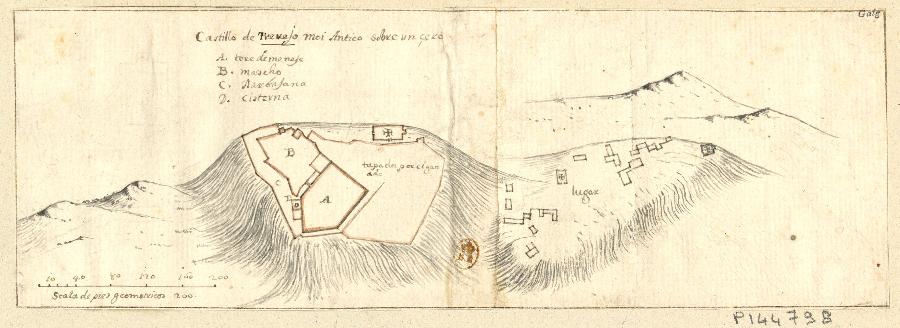 Galg
Castillo de Nevejo moi Antico sobre un cero
A. tore de monaje
B. mascho
C. Barbasana
D. Cisterna
B
tapados por el gan
dado
lugar
C
D
A
20 40 80 120 160 200
Scala de pies geometricos 200
P144798